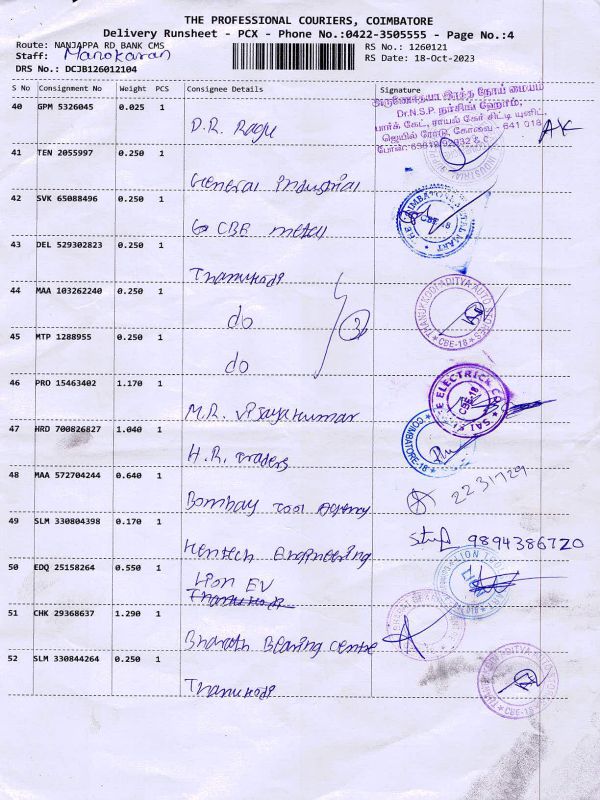 THE PROFESSIONAL COURIERS, COIMBATORE
Delivery Runsheet - PCX - Phone No.:0422-3505555 - Page No.:4
Route: NANJAPPA RD BANK CMS
RS No.: 1260121
Staff: Manokaran
RS Date: 18-Oct-2023
DRS No.: DCJB126012104
S No Consignment No Weight PCS Consignee Details Signature
40 GPM 5326045 0.025 1 D.R. Raju
அருணோதயா இரத்த நோய் மையம்
Dr.N.S.P நர்சிங் ஹோம்,
பார்க் கேட், ராயல் கேர் சிட்டி யுனிட்,
ஜெயில் ரோடு, கோவை - 641 018
41 TEN 2055997 0.250 1 General Industrial
42 SVK 65088496 0.250 1 CBE metall
CBE-18
43 DEL 529302823 0.250 1 Thanukodi
44 MAA 103262240 0.250 1 do
3
THANUKKODI ADITYA AUTO STORES
CBE-18
45 MTP 1288955 0.250 1 do
46 PRO 15463402 1.170 1 M.R. Vijayakumar
SAI ELECTRICK
CBE-18
47 HRD 700826827 1.040 1 H.R. Traders
COIMBATORE-18
48 MAA 572704244 0.640 1 Bombay Tool Agency
2231729
49 SLM 330804398 0.170 1 Hentech Engineering
9894386720
50 EDQ 25158264 0.550 1 Lion EV
Thanukodi
LION
51 CHK 29368637 1.290 1 Bharath Bearing Centre
52 SLM 330844264 0.250 1 Thanukodi
CBE-18